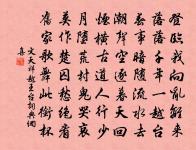 登臨我向亂離來
落落千年一越臺
春事暗隨流水去
潮聲空逐暮天回
煙橫古道人行少
月墮荒村鬼哭哀
莫作楚囚愁絕看
舊家歌舞此銜杯
文天祥越王台詞典網
集